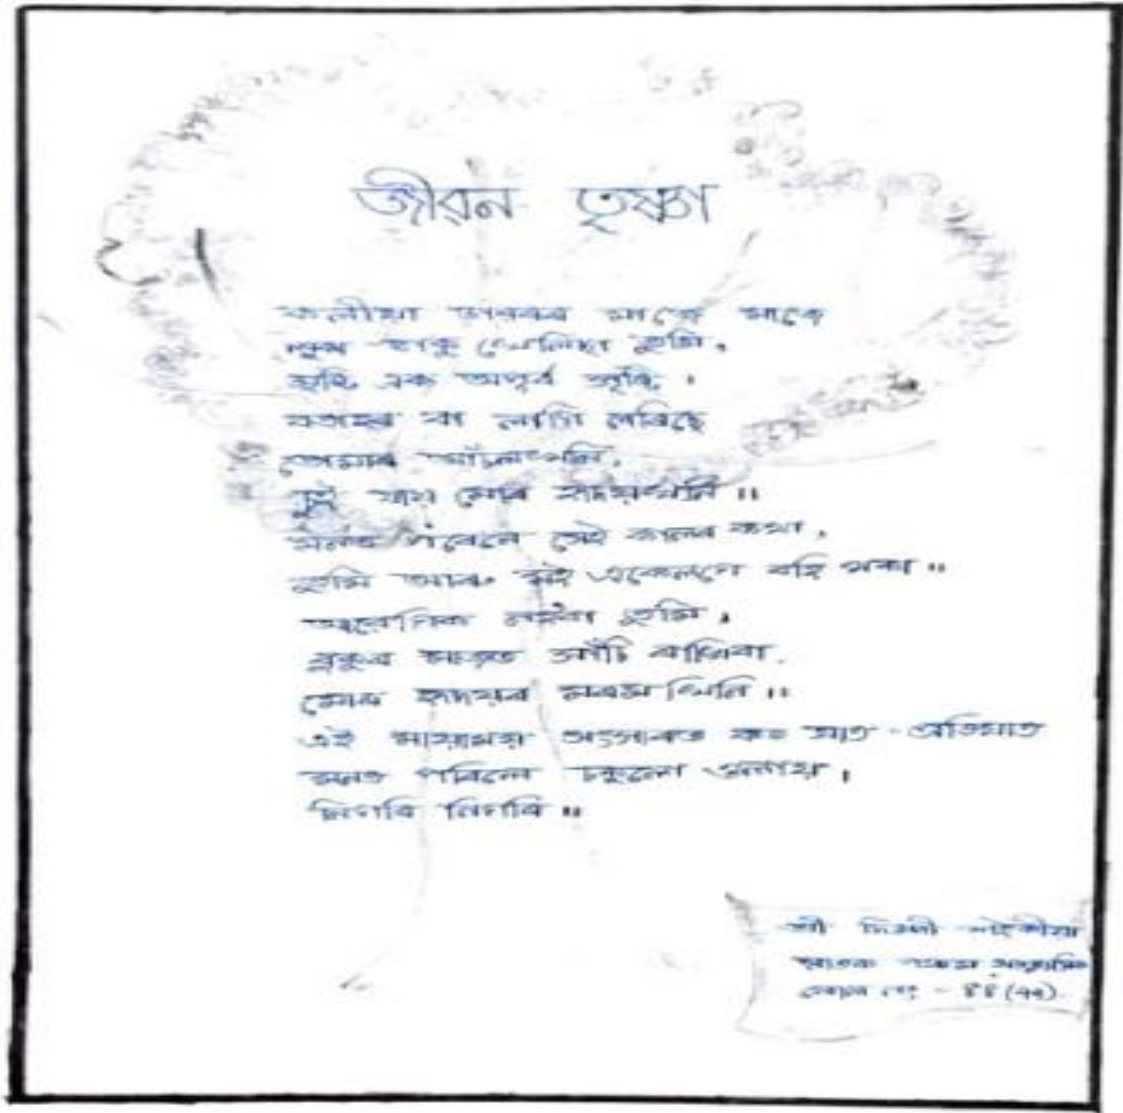 জীৱন তৃষ্ণা
কলীয়া ডাৱৰৰ মাজে মাজে
লুকা ভাকু খেলিছা তুমি,
তুমি এক অপূৰ্ব সৃষ্টি ।
বতাহৰ বা লাগি লৰিছে
তোমাৰ আঁচলখনি,
চুই যায় মোৰ হৃদয়খনি ॥
মনত পৰেনে সেই কালৰ কথা,
তুমি আৰু মই একেলগে বহি থকা ॥
নহবা তুমি,
বুকুৰ মাজত সাঁচি ৰাখিবা
মোৰ হৃদয়ৰ মৰমখিনি ॥
এই মায়াময় সংসাৰত কত ঘাত - প্ৰতিঘাত
মনত পৰিলে চকুলো ওলায় ।
নিগৰি নিগৰি ॥
শ্ৰী শইকীয়া
স্নাতক পঞ্চম ষান্মাসিক
ৰোল নং -